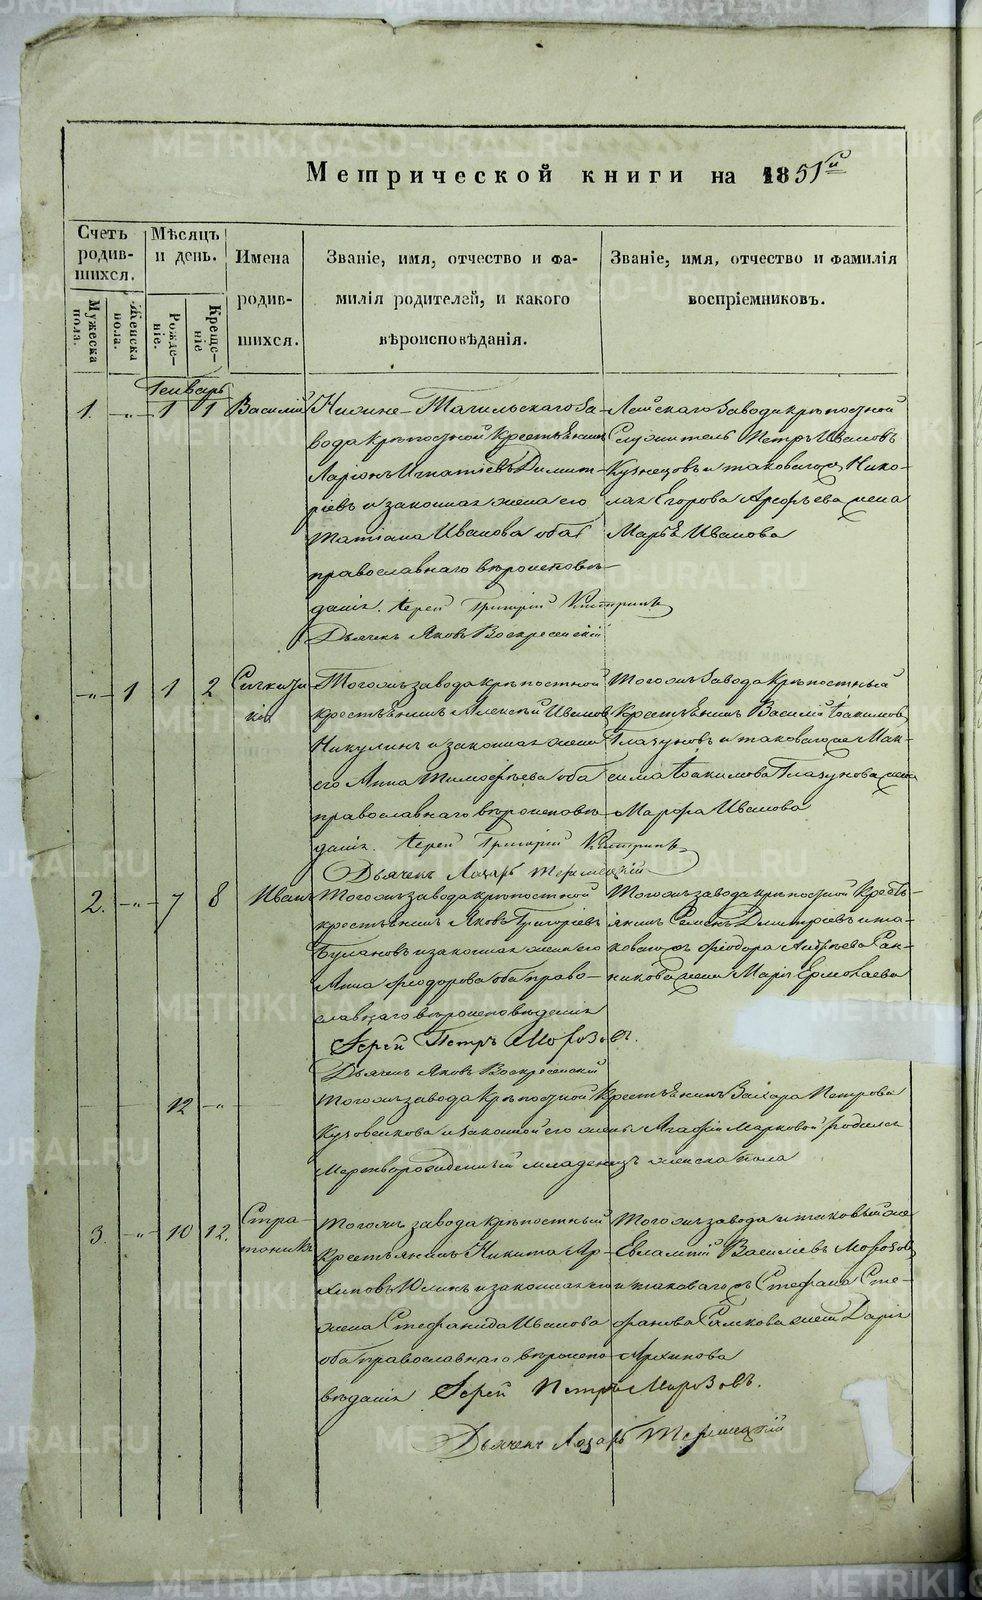 Метрической книги на 1851й
Счетъ родив- шихся.
Мѣсяцъ и день.
Имена родив- шихся.
Званіе, имя, отчество и фа-
милія родителей, и какого
вѣроисповѣданія.
Званіе, имя, отчество и фамилія
воспріемниковъ.
Мужеска пола.
Женска пола.
Рожде- ніе.
Креще- ніе
Генварь
1. -„- 1 1 Василій
Нижне-Тагильскаго за-
вода крѣпостной крестьянинъ
Ларіонъ Игнатіевъ Димит-
ріевъ и законная жена его
Татіана Иванова оба
православнаго вѣроисповѣ-
данія. Іерей Григорій
Дьячекъ Яковъ Воскресенскій
Лайскаго завода крѣпостной
Служитель Петръ Ивановъ
Кузнецовъ и таковагожъ Нико-
лая Егорова Арефьева жена
Марья Иванова
-„- 1 1 2
Тогожъ завода крѣпостной
крестьянинъ Алексѣй Ивановъ
Никулинъ и законная жена
его Анна Тимофѣева оба
православнаго вѣроисповѣ-
данія. Іерей Григорій
Дьячекъ Лазарь
Тогожъ завода крѣпостный
крестьянинъ Василій Іоакимовъ
Глазуновъ и таковагоже Мак-
сима Іоакимова Глазунова жена
Марфа Иванова
2. -„- 7 8 Иванъ
Тогожъ завода крѣпостной
крестьянинъ Яковъ Григорьевъ
Булановъ и законная жена его
Анна Феодорова оба право-
славнаго вѣроисповѣданія
Іерей Петръ Морозовъ.
Дьячекъ Яковъ Воскресенскій
Тогожъ завода крѣпостной кресть-
янинъ Семенъ Дмитріевъ и та-
ковагожъ Феодора Андрѣева Сан-
никова жена Марія Ермолаева
12 -„-
Тогожъ завода крѣпостной крестьянинъ Захара Петрова
и законной его жены Агафіи Марковой родился
Мертворожденный младенецъ женска пола
3. -„- 10 12. Стра- тоникъ
Тогожъ завода крѣпостный
крестьянинъ Никита Ар-
хиповъ и законная его
жена Стефанида Иванова
оба православнаго вѣроиспо-
вѣданія Іерей Петръ Морозовъ.
Дьячекъ Лазарь
Тогожъ завода и таковый же
Евлампій Василіевъ Морозовъ
и таковагожъ Стефана Сте-
фанова жена Дарія
Архипова
METRIKI.GASO-URAL.RU